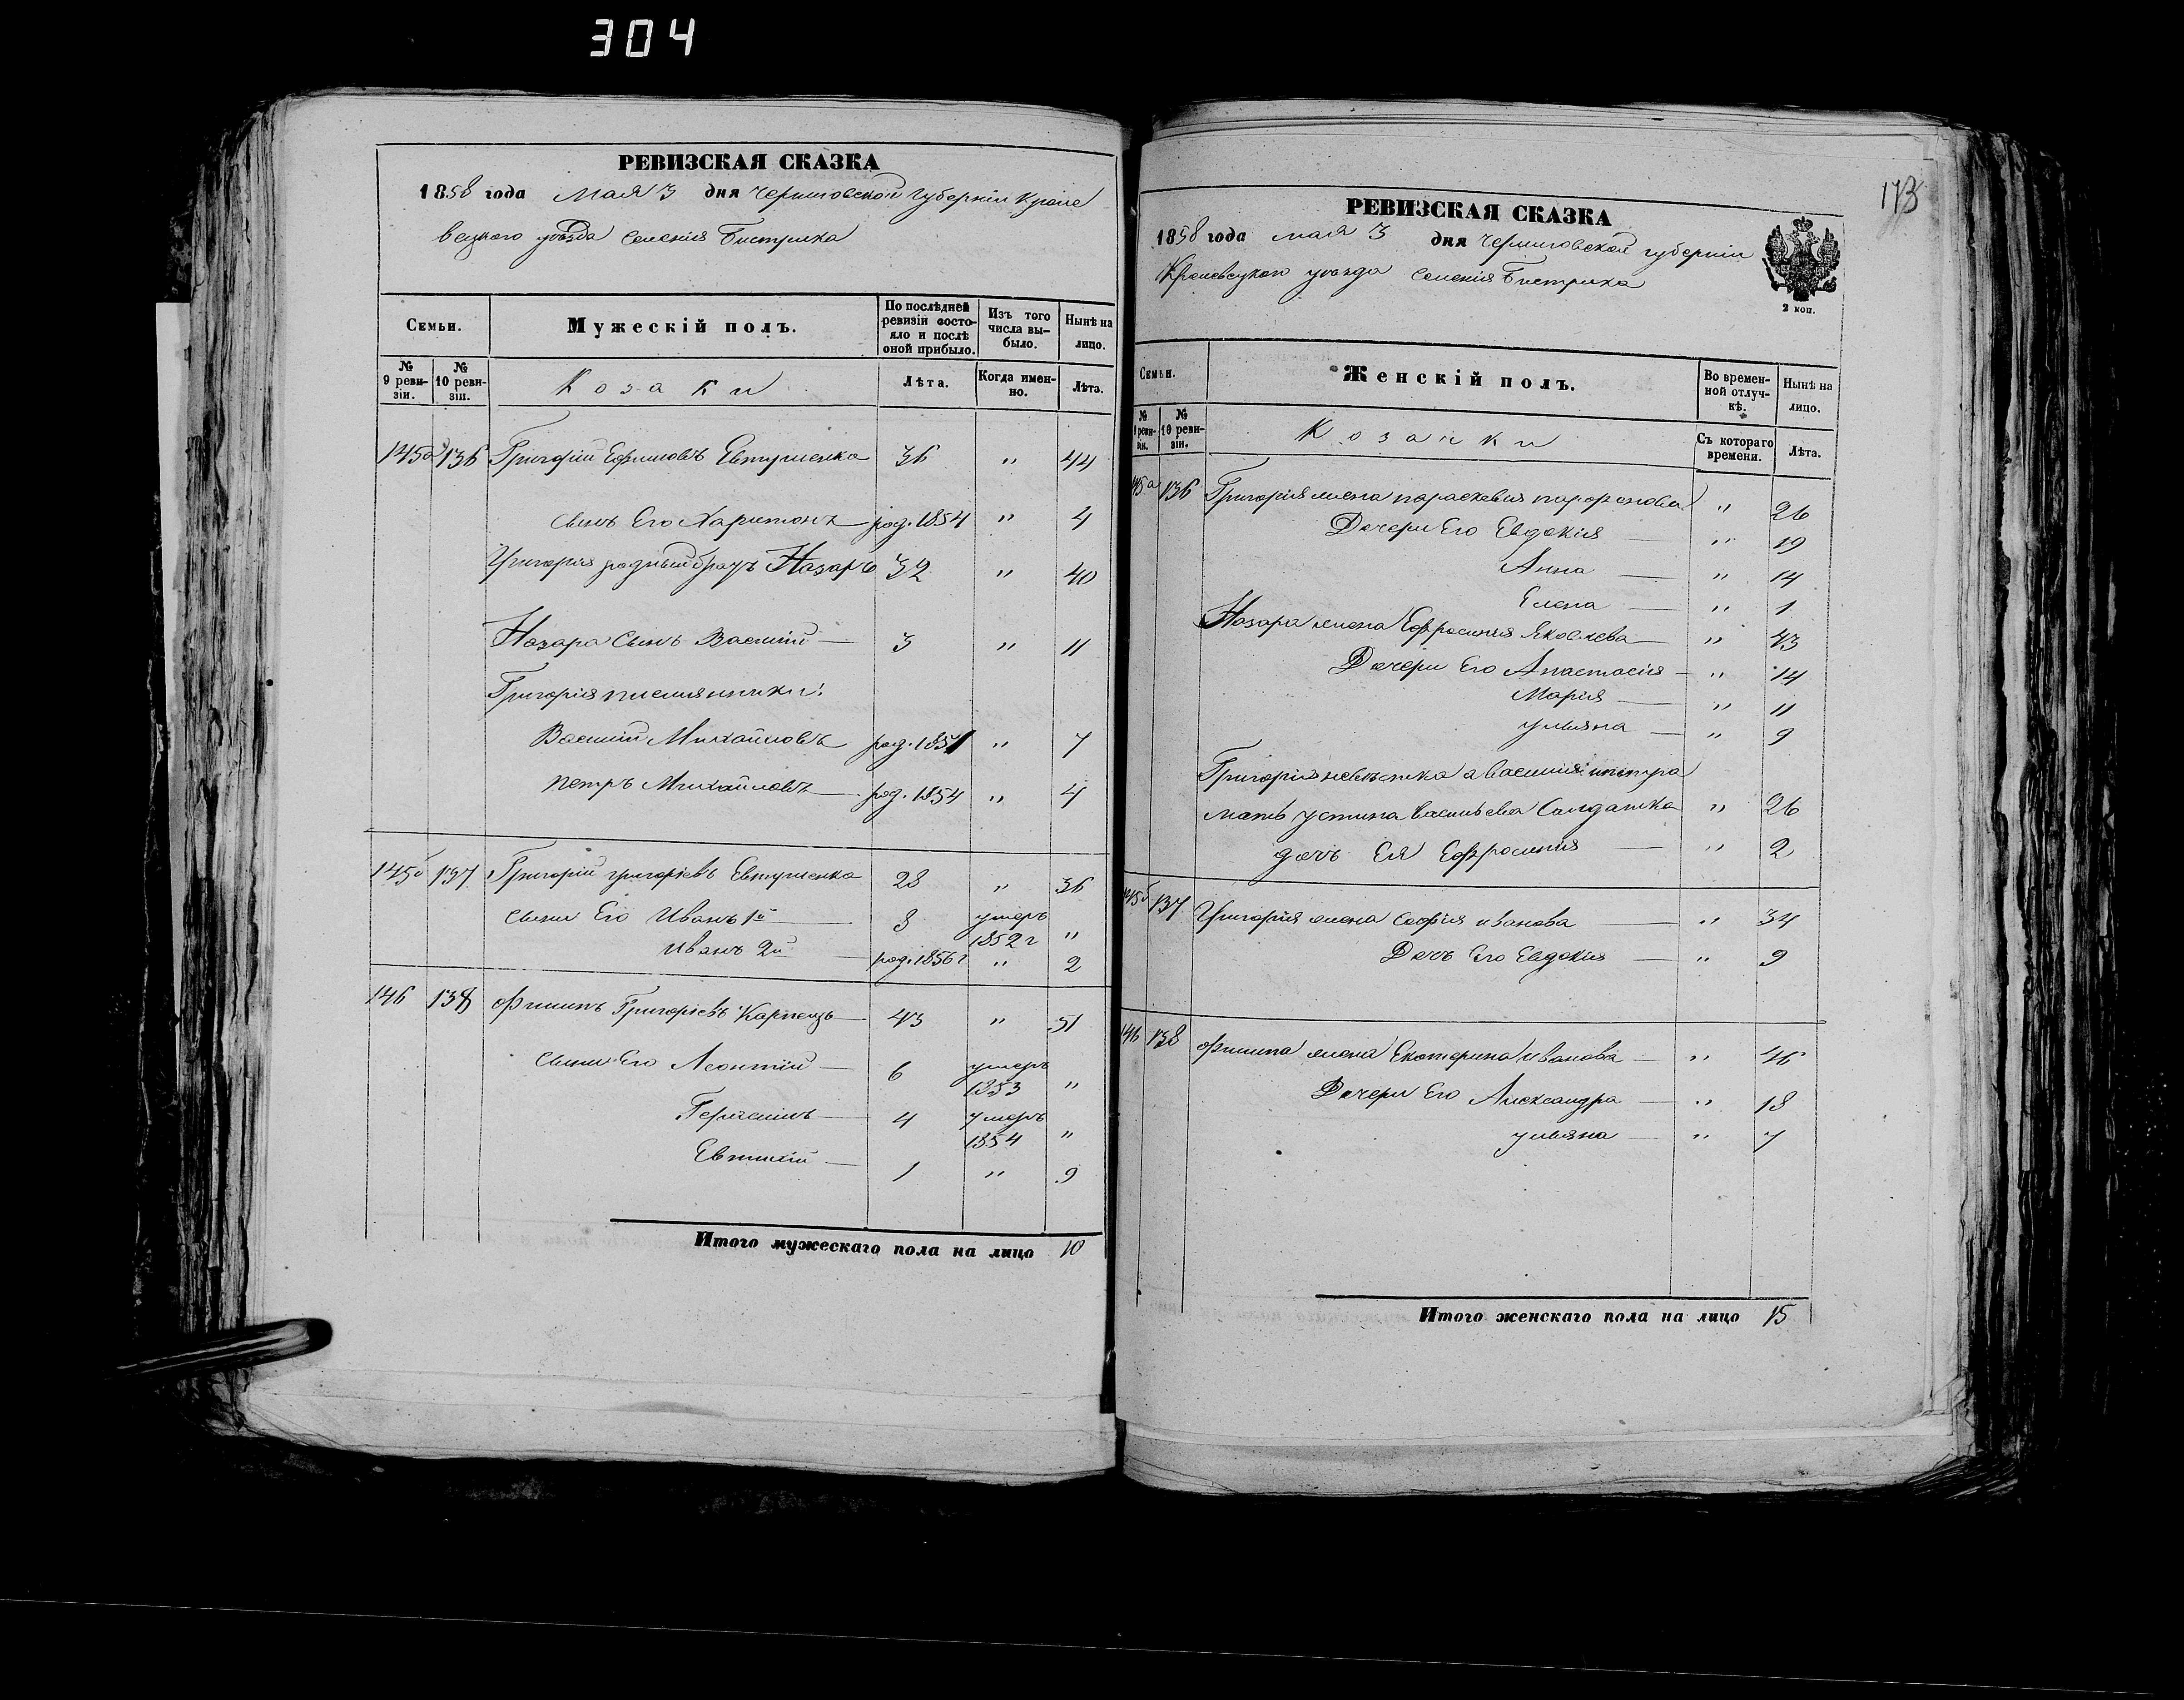 304
РЕВИЗСКАЯ СКАЗКА
1858 года Мая 3 дня Черниговской Губернiи Кроле
вецкого уѣзда Селенiя Бистрика
Семьи.
Мужескiй полъ.
По послѣдней ревизiи состояло и послѣ оной прибыло.
Изъ того числа выбыло.
Нынѣ на лицо.
№ 9 ревизiи.
№ 10 ревизiи.
Козаки
Лѣта.
Когда именно.
Лѣта.
145а 136 Григорiй Ефимовъ Евтушенка 36 " 44
Сынъ Его Харитонъ род. 1854 " 4
Григорiя родный братъ Назаръ 32 " 40
Назара Сынъ Василiй — 3 " 11
Григорiя племянники:
Василiй Михайловъ род. 1851 " 7
Петръ Михайловъ — род. 1854 " 4
145б 137 Григорiй григорiевъ Евтушенка 28 " 36
Сыни Его Иванъ 1й — 8 умеръ 1852 г "
Иванъ 2й — род. 1856 г " 2
146 138 Филипъ Григорiевъ Карпецъ — 43 " 51
Сыни Его Леонтiй — 6 умеръ 1853 "
Герасимъ — 4 умеръ 1854 "
Евтихiй — 1 " 9
Итого мужескаго пола на лицо 10
173
РЕВИЗСКАЯ СКАЗКА
1858 года мая 3 дня Черниговской губернiи
Кролевецкого уѣзда Селенiя Бистрика
2 коп.
Семьи.
Женскiй полъ.
Во временной отлучкѣ.
Нынѣ на лицо.
№ 9 ревизiи.
№ 10 ревизiи.
Козачки
Съ котораго времени.
Лѣта.
145а 136 Григорiя жена параскевия парфонова " 26
Дочери Его Евдокiя — " 19
Анна — " 14
Елена — " 1
Назара жена Ефросинiя Яковлева — " 43
Дочери Его Анастасiя — " 14
Марiя — " 11
Улiяна — " 9
Григорiя невѣстка а василiя и петра
мать устина васильева Солдатка " 26
дочь Ея Ефросинiя — " 2
145б 137 Григорiя жена Софiя иванова — " 34
Дочь Его Евдокiя — " 9
146 138 Филипа жена Екатерина иванова — " 46
Дочери Его Александра — " 18
улiяна — " 7
Итого женскаго пола на лицо 15